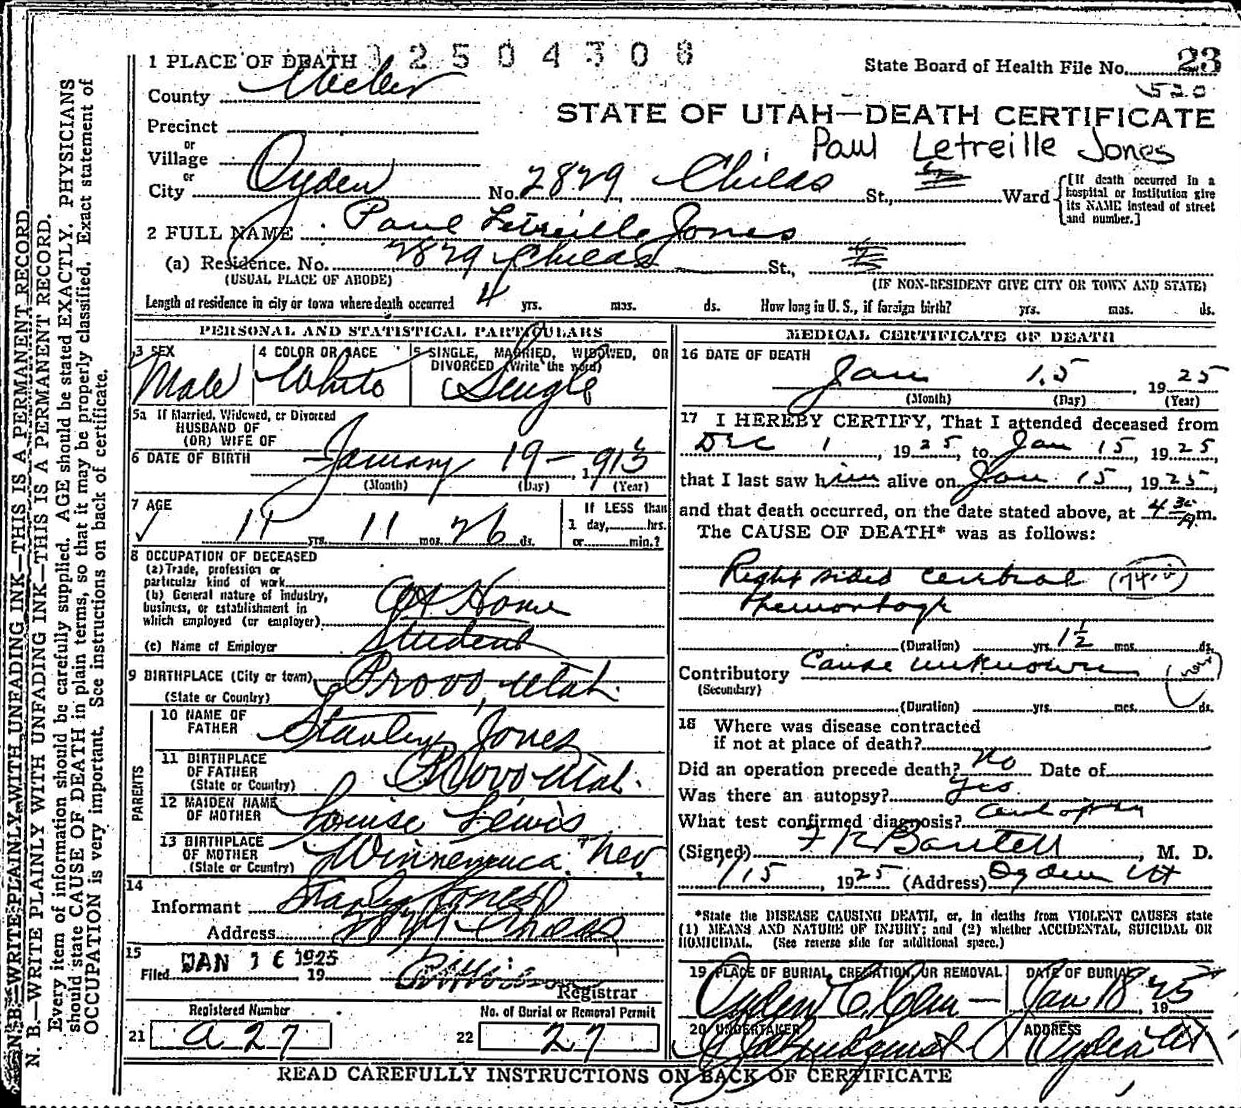 1 PLACE OF DEATH 12504308
State Board of Health File No. 23
520
County Weber
STATE OF UTAH—DEATH CERTIFICATE
Precinct
or
Paul Letreille Jones
Village
or
City Ogden No. 2829 Childs St., Ward
[If death occurred in a hospital or institution give its NAME instead of street and number.]
2 FULL NAME Paul Letreille Jones
(a) Residence. No. 2829 Childs St.,
(USUAL PLACE OF ABODE) (IF NON-RESIDENT GIVE CITY OR TOWN AND STATE)
Length of residence in city or town where death occurred 4 yrs. mos. ds. How long in U. S., if foreign birth? yrs. mos. ds.
PERSONAL AND STATISTICAL PARTICULARS
3 SEX 4 COLOR OR RACE 5 SINGLE, MARRIED, WIDOWED, OR
DIVORCED (Write the word)
Male White Single
5a If Married, Widowed, or Divorced
HUSBAND OF
(OR) WIFE OF
6 DATE OF BIRTH January 19 - 1913
(Month) (Day) (Year)
7 AGE If LESS than
1 day, hrs.
11 yrs. 11 mos. 26 ds. or min.?
8 OCCUPATION OF DECEASED
(a) Trade, profession or
particular kind of work
(b) General nature of industry,
business, or establishment in
which employed (or employer) At Home
Student
(c) Name of Employer
9 BIRTHPLACE (City or town) Provo, Utah.
(State or Country)
PARENTS
10 NAME OF
FATHER Stanley Jones
11 BIRTHPLACE
OF FATHER Provo Utah.
(State or Country)
12 MAIDEN NAME
OF MOTHER Louise Lewis
13 BIRTHPLACE
OF MOTHER Winnemuca. Nev
(State or Country)
14
Informant Stanley Jones
Address 2829 Childs
15
Filed JAN 16 1925 19
Registrar
Registered Number No. of Burial or Removal Permit
21 a 27 22 27
MEDICAL CERTIFICATE OF DEATH
16 DATE OF DEATH
Jan 15, 1925
(Month) (Day) (Year)
17 I HEREBY CERTIFY, That I attended deceased from
Dec 1, 1925, to Jan 15, 1925,
that I last saw him alive on Jan 15, 1925,
and that death occurred, on the date stated above, at 4 30 A m.
The CAUSE OF DEATH* was as follows:
Right sided cerebral
Hemorhage
(Duration) yrs. 1½ mos. ds.
Contributory Cause unknown
(Secondary)
(Duration) yrs. mos. ds.
18 Where was disease contracted
if not at place of death?
Did an operation precede death? no Date of
Was there an autopsy? yes
What test confirmed diagnosis? autopsy
(Signed) F K Bartlett, M. D.
1/15, 1925 (Address) Ogden Ut
*State the DISEASE CAUSING DEATH, or, in deaths from VIOLENT CAUSES state
(1) MEANS AND NATURE OF INJURY; and (2) whether ACCIDENTAL, SUICIDAL OR
HOMICIDAL. (See reverse side for additional space.)
19 PLACE OF BURIAL, CREMATION, OR REMOVAL DATE OF BURIAL
Ogden C. Cem - Jan 18 1925
20 UNDERTAKER ADDRESS
Ogden Ut
READ CAREFULLY INSTRUCTIONS ON BACK OF CERTIFICATE
N. B.—WRITE PLAINLY WITH UNFADING INK—THIS IS A PERMANENT RECORD.
N. B.—WRITE PLAINLY WITH UNFADING INK—THIS IS A PERMANENT RECORD.
Every item of information should be carefully supplied. AGE should be stated EXACTLY. PHYSICIANS
should state CAUSE OF DEATH in plain terms, so that it may be properly classified. Exact statement of
OCCUPATION is very important. See instructions on back of certificate.